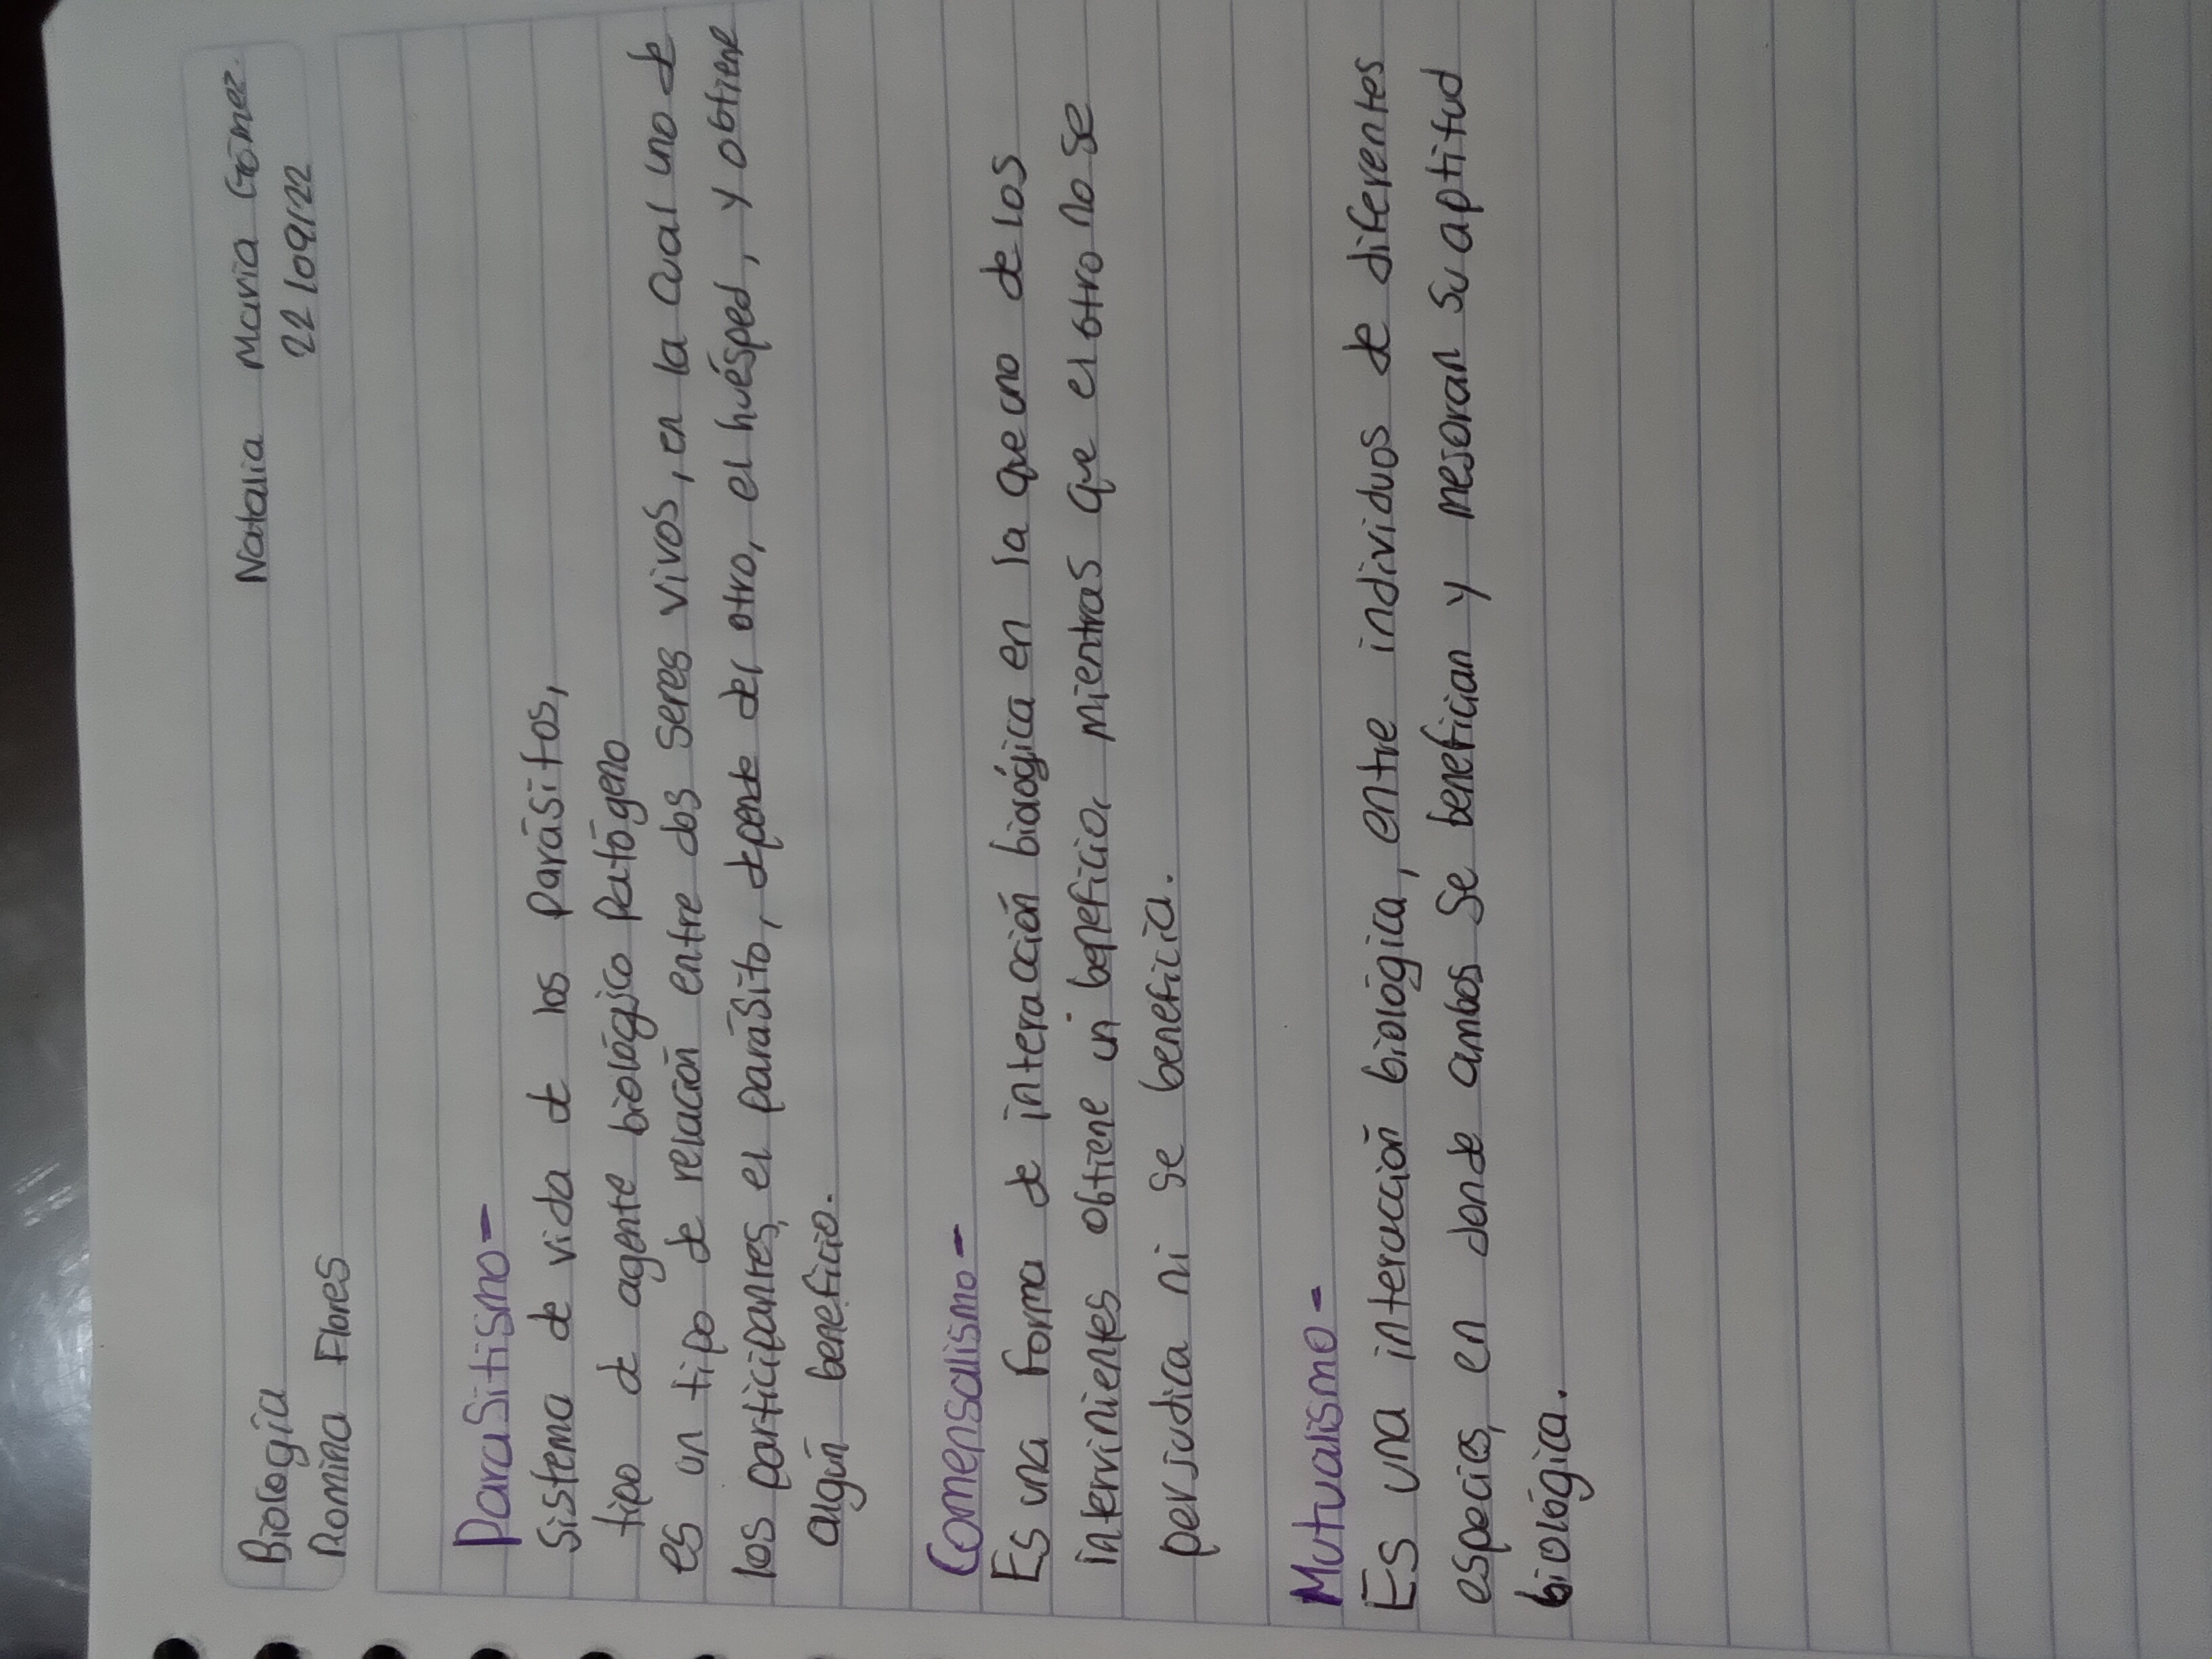 Biología
Natalia María Gómez.
Romina Flores
22/09/22
Parasitismo-
Sistema de vida de los parásitos,
tipo de agente biológico patógeno
es un tipo de relación entre dos seres vivos, en la cual uno de
los participantes, el parásito, depende del otro, el huésped, y obtiene
algún beneficio.
Comensalismo-
Es una forma de interacción biológica en la que uno de los
intervinientes obtiene un beneficio, mientras que el otro no se
perjudica ni se beneficia.
Mutualismo-
Es una interacción biológica, entre individuos de diferentes
especies, en donde ambos se benefician y mejoran su aptitud
biológica.